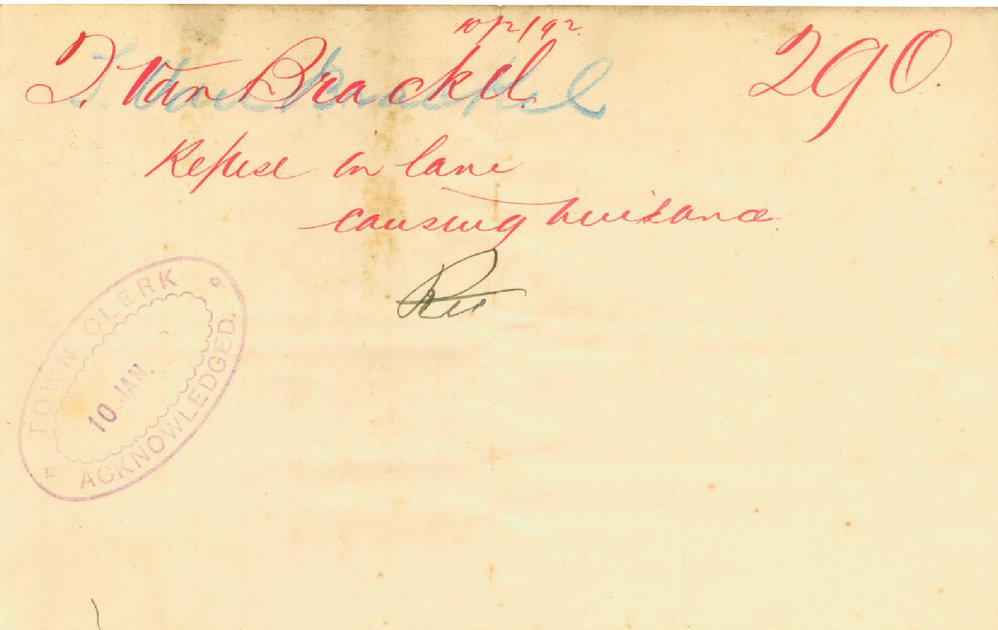 10/2/92
T. Van Brackel. 290.
Refuse in lane
causing nuisance.
TOWN CLERK
10 JAN.
ACKNOWLEDGED.